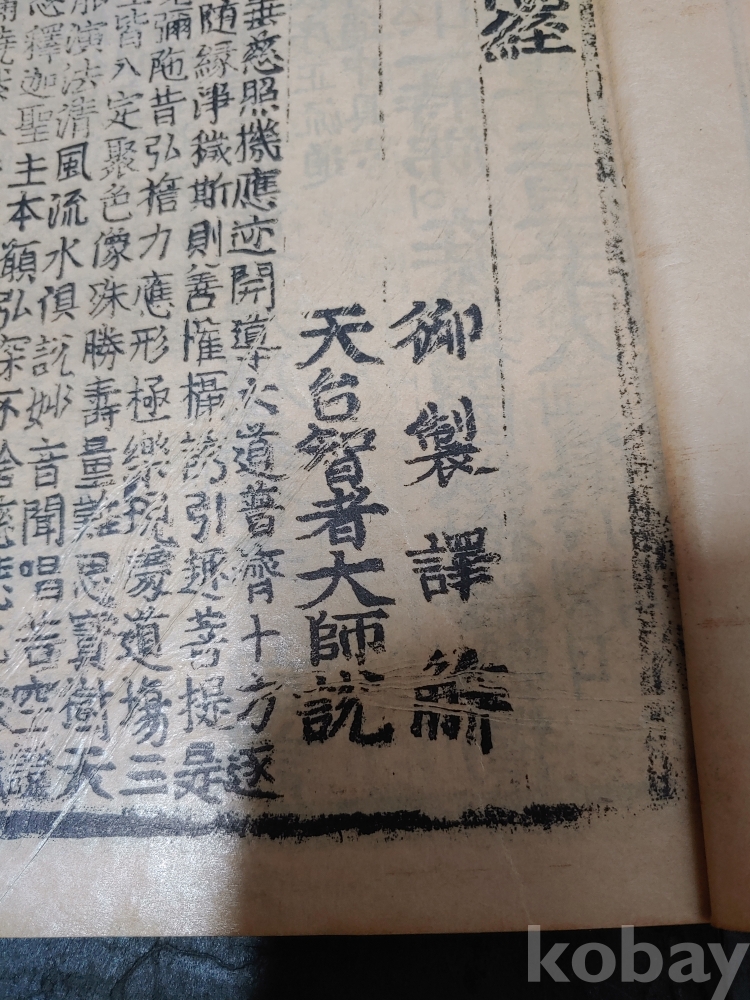 經
御製譯觧
天台智者大師說
垂慈照機應迹開導大道普濟十方逐
随緣淨穢斯則善權攝誘引趣菩提是
彌陁昔弘擔力應形極樂現處道場三
皆入定聚色像殊勝壽量難思寶樹天
演法清風流水俱說妙音聞唱苦空
釋迦聖主本願弘深不捨
kobay